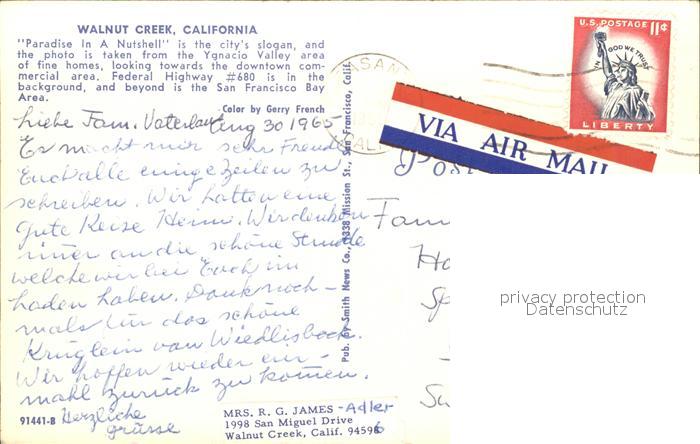 WALNUT CREEK, CALIFORNIA
"Paradise In A Nutshell" is the city's slogan, and
the photo is taken from the Ygnacio Valley area
of fine homes, looking towards the downtown com-
mercial area. Federal Highway #680 is in the
background, and beyond is the San Francisco Bay
Area.
Color by Gerry French
Liebe Fam. 30 1965
Er macht mir sehr Freude
Euch alle einige Zeilen zu
schreiben. Wir hatten eine
gute Reise Heim. Wir denken
imer an die schöne Stunde
welche wir bei Euch im
haben. Dank noch-
mals für das schöne
Krüglein von Wiedlisbach.
Wir hoffen wieder ein-
mahl zurück zu komen.
Herzliche
grüsse
91441-B
Pub. by Smith News Co., 1338 Mission St., San Francisco, Calif.
U.S. POSTAGE 11¢
IN GOD WE TRUST
LIBERTY
VIA AIR MAIL
Fam
Ho
Sp
Su
privacy protection
Datenschutz
MRS. R. G. JAMES -Adler
1998 San Miguel Drive
Walnut Creek, Calif. 94596